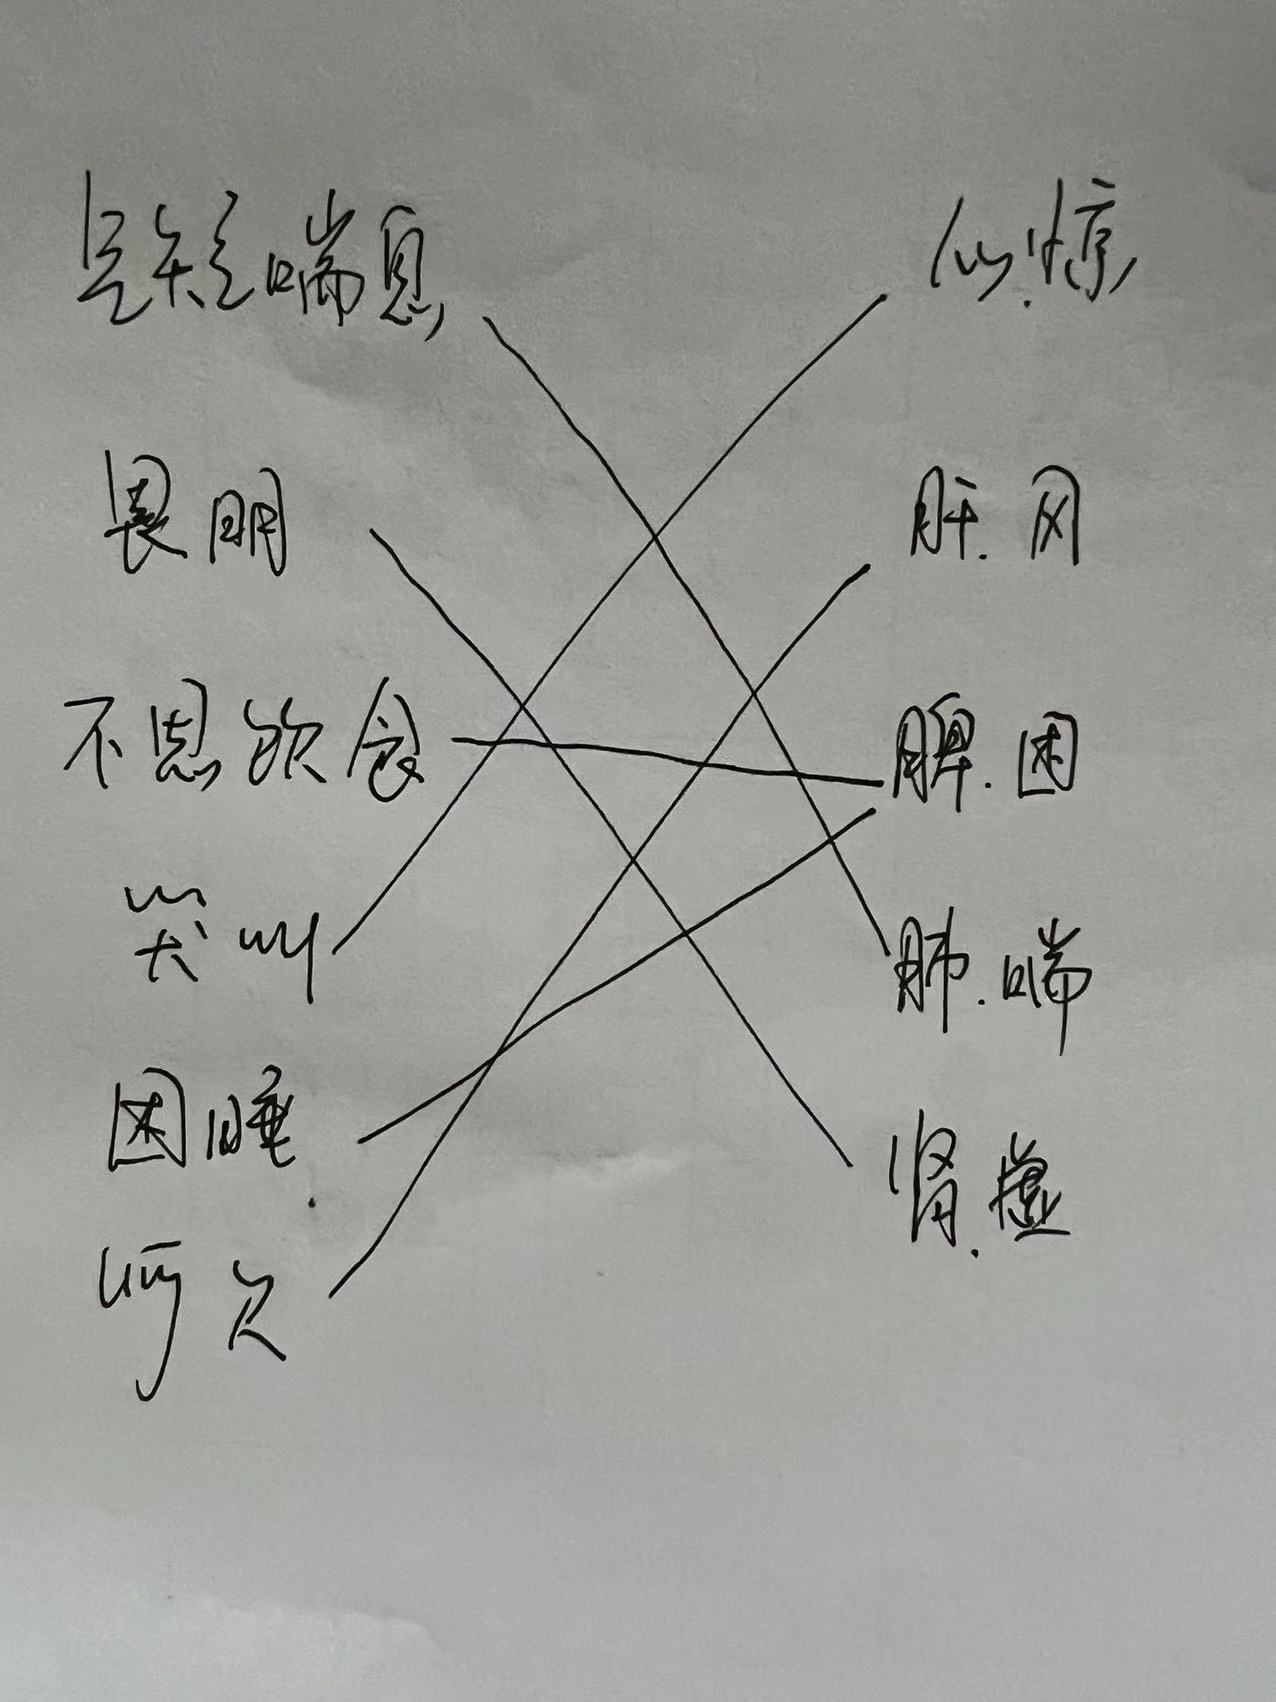 气短喘息
心.惊
畏明
肝.风
不思饮食
脾.困
哭叫
肺.喘
困睡.
肾.虚
呵欠